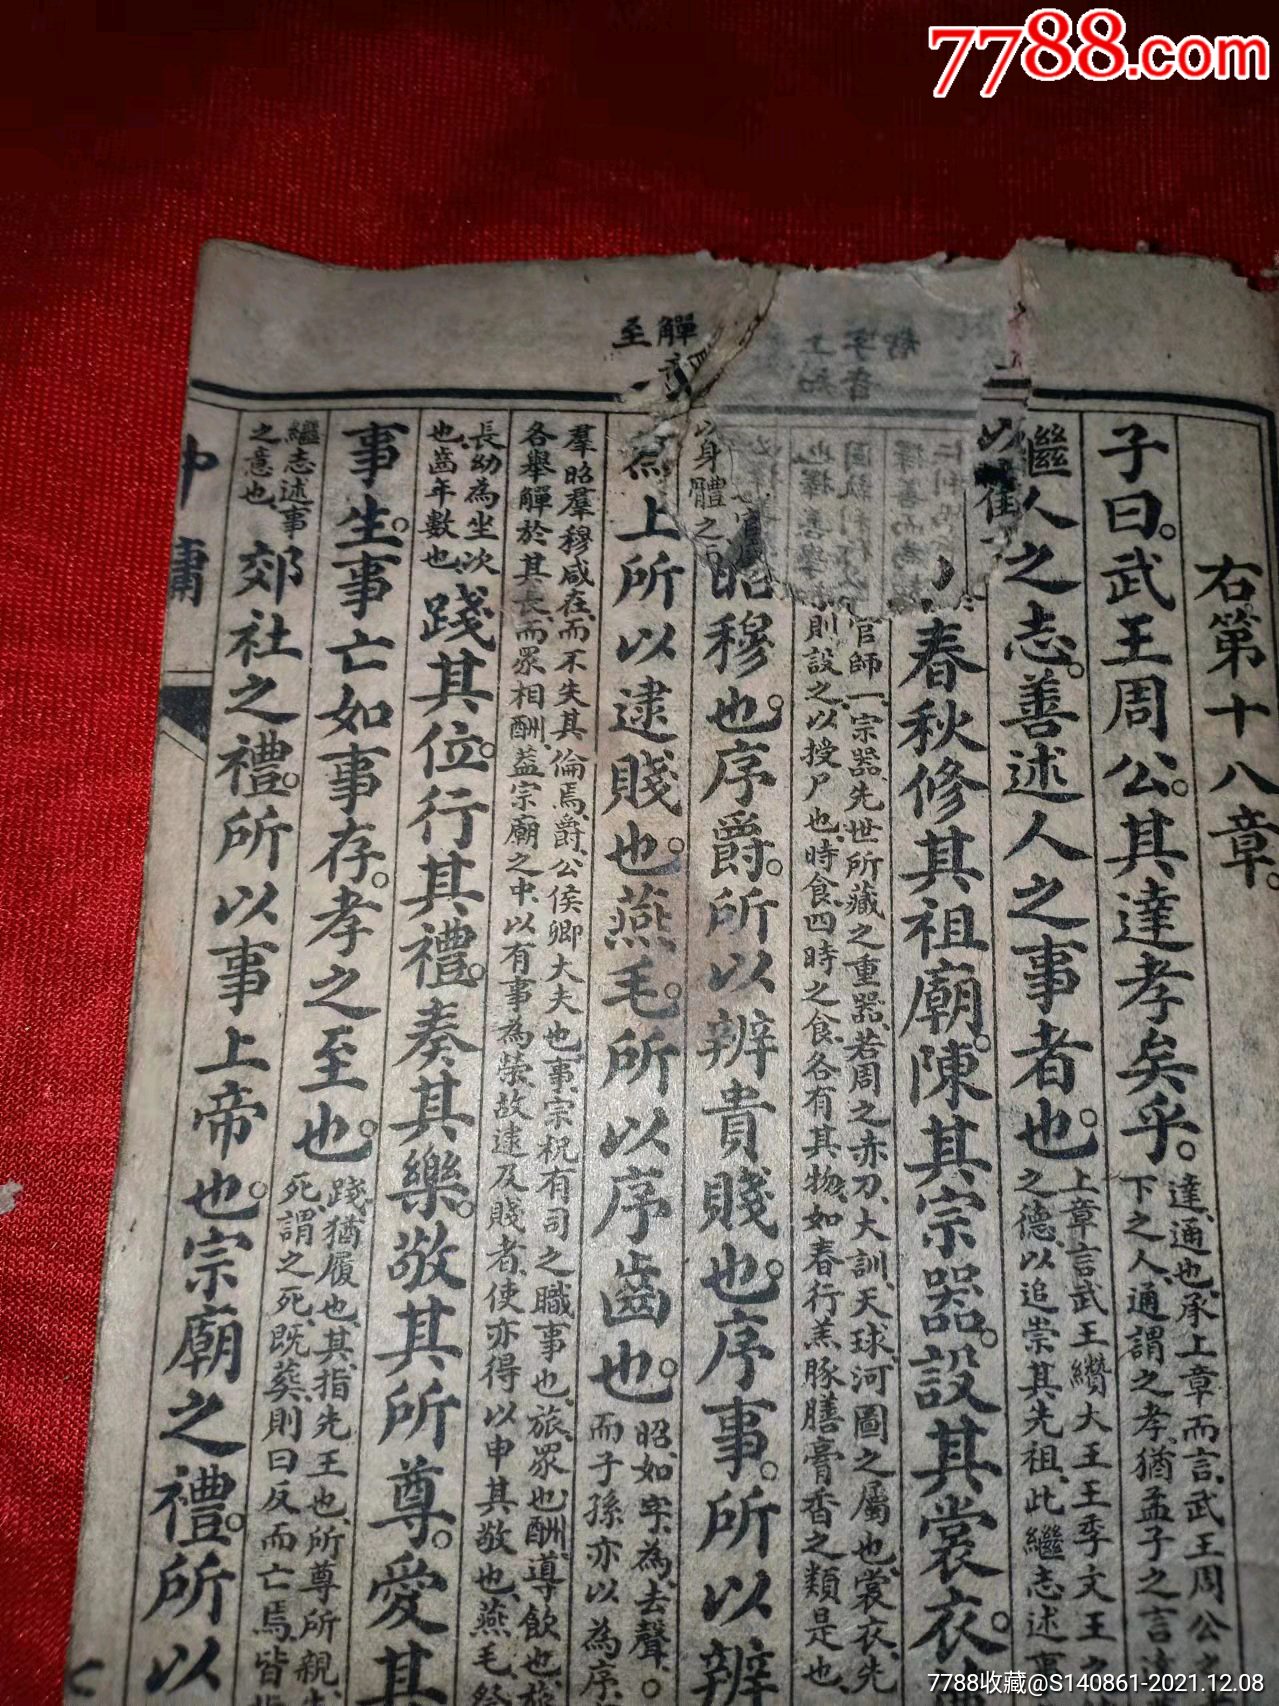 7788.com
觶
至
右第十八章。
子曰。武王周公。其達孝矣乎。達、通也、承上章而言、武王周公之
下之人、通謂之孝、猶孟子之言達
繼人之志。善述人之事者也。上章言武王纘大王王季文王之
之德、以追崇其先祖、此繼志述事
春秋修其祖廟。陳其宗器。設其裳衣。
官師一、宗器、先世所藏之重器、若周之赤刀、大訓、天球、河圖之屬也、裳衣、先
則設之以授尸也、時食、四時之食、各有其物、如春行羔豚膳膏香之類是也、
昭穆也。序爵。所以辨貴賤也。序事。所以辨
上所以逮賤也。燕毛。所以序齒也。昭、如字、為、去聲。
而子孫亦以為序
羣昭羣穆咸在、而不失其倫焉、爵、公侯卿大夫也、事、宗祝有司之職事也、旅、眾也、酬、導飲也、旅
各舉觶於其長、而眾相酬、蓋宗廟之中、以有事為榮、故逮及賤者、使亦得以申其敬也、燕毛、祭
長幼為坐次
也、齒、年數也、踐其位。行其禮。奏其樂。敬其所尊。愛其
事生。事亡如事存。孝之至也。踐、猶履也、其、指先王也、所尊所親、
死、謂之死、既葬、則曰反而亡焉、皆指
繼志述事
之意也、郊社之禮。所以事上帝也。宗廟之禮。所以
中庸
7788收藏@S140861-2021.12.08